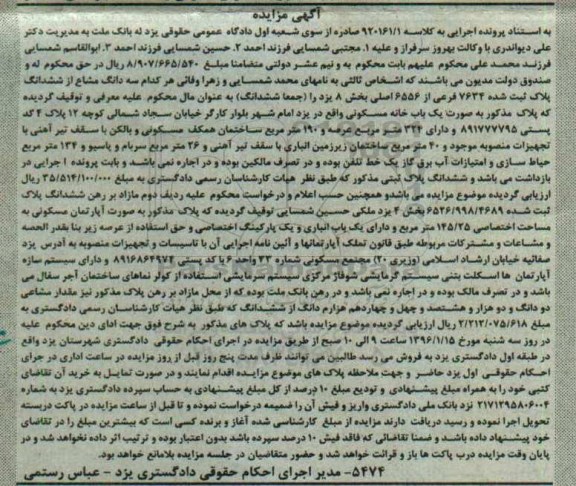 آگهی مزایده
به استناد پرونده اجرایی به کلاسه ۹۲۰۱۶۱/۱ صادره از سوی شعبه اول دادگاه عمومی حقوقی یزد له بانک ملت به مدیریت دکتر
علی دیواندری با وکالت بهروز سرفراز و علیه ۱. مجتبی شمسایی فرزند احمد ۲. حسین شمسایی فرزند احمد ۳. ابوالقاسم شمسایی
فرزند محمد علی محکوم علیهم بابت محکوم به و نیم عشر دولتی متضامنا مبلغ ۸/۹۰۷/۶۶۵/۵۴۰ ریال در حق محکوم له و
صندوق دولت مدیون می باشند که اشخاص ثالثی به نامهای محمد شمسایی و زهرا وفائی هر کدام سه دانگ مشاع از ششدانگ
پلاک ثبت شده ۷۶۳۴ فرعی از ۶۵۵۶ اصلی بخش ۸ یزد را (جمعا ششدانگ) به عنوان مال محکوم علیه معرفی و توقیف گردیده
که پلاک مذکور به صورت یک باب خانه مسکونی واقع در یزد امام شهر بلوار کارگر خیابان سجاد شمالی کوچه ۱۲ پلاک ۴ کد
پستی ۸۹۱۷۷۷۷۹۵ و دارای ۳۲۴ متر مربع عرصه و ۱۹۰ متر مربع ساختمان همکف مسکونی و بالکن با سقف تیر آهنی با
تجهیزات منصوبه موجود و ۴۰ متر مربع ساختمان زیرزمین انباری با سقف تیر آهنی و ۲۶ متر مربع سربام و پاسیو و ۱۳۴ متر مربع
حیاط سازی و امتیازات آب برق گاز یک خط تلفن بوده و در تصرف مالکین بوده و در اجاره نمی باشد و بابت پرونده اجرایی در
بازداشت می باشد و ششدانگ پلاک ثبتی مذکور که طبق نظر هیات کارشناسان رسمی دادگستری به مبلغ ۳۵/۵۱۴/۱۰۰/۰۰۰ ریال
ارزیابی گردیده موضوع مزایده می باشدو همچنین حسب اعلام و درخواست محکوم علیه ردیف دوم مازاد بر رهن ششدانگ پلاک
ثبت شده ۶۵۲۶/۹۹۸/۴۶۸۹ بخش ۴ یزد ملکی حسین شمسایی توقیف گردیده که پلاک مذکور به صورت آپارتمان مسکونی به
مساحت اختصاصی ۱۴۵/۲۵ متر مربع و دارای یک باب انباری و یک پارکینگ اختصاصی و حق استفاده از عرصه زیر بنا بقدر الحصه
و مشاعات و مشترکات مربوطه طبق قانون تملک آپارتمانها و آئین نامه اجرایی آن با تاسیسات و تجهیزات منصوبه به آدرس یزد
صفائیه خیابان ارشاد اسلامی (وزیری ۲۰) مجتمع مسکونی شماره ۳۳ واحد ۶ با کد پستی ۸۹۱۶۸۶۴۹۷۴ و دارای سیستم سازه
آپارتمان ها اسکلت بتنی سیستم گرمایشی شوفاژ مرکزی سیستم سرمایشی استفاده از کولر نماهای ساختمان آجر سفال می
باشد و در تصرف مالک بوده و در اجاره نمی باشد و در رهن بانک ملت بوده که از محل مازاد بر رهن پلاک مذکور نیز مقدار مشاعی
دو دانگ و دو هزار و هشتصد و چهل و چهاردهم هزارم دانگ از ششدانگ که طبق نظر هیات کارشناسان رسمی دادگستری به
مبلغ ۲/۲۱۲/۰۷۵/۶۱۸ ریال ارزیابی گردیده موضوع مزایده باشد که پلاک های مذکور به شرح فوق جهت ادای دین محکوم علیه
در روز سه شنبه مورخ ۱۳۹۶/۱/۱۵ ساعت ۹ الی ۱۰ صبح از طریق مزایده در اجرای احکام حقوقی دادگستری شهرستان یزد واقع
در طبقه اول دادگستری یزد به فروش می رسد طالبین می توانند ظرف مدت پنج روز قبل از روز مزایده در ساعت اداری در جرای
احکام حقوقی اول یزد حاضر و جهت ملاحظه پلاک های موضوع مزایده اقدام نمایند و در صورت تمایل به خرید آن تقاضای
کتبی خود را به همراه مبلغ پیشنهادی و تودیع مبلغ ۱۰ درصد از کل مبلغ پیشنهادی به حساب سپرده دادگستری یزد به شماره
۲۱۷۱۲۹۵۸۰۶۰۰۴ نزد بانک ملی دادگستری واریز و فیش آن را ضمیمه درخواست نموده و تا قبل از ساعت مزایده در پاکت دربسته
تحویل اجرا نموده و رسید دریافت دارند مزایده از مبلغ کارشناسی شده آغاز و برنده کسی است که بیشترین مبلغ را در تقاضای
خود پیشنهاد داده باشد و ضمنا تقاضائی که فاقد فیش ۱۰ درصد سپرده باشد بدون اعتبار بوده و ترتیب اثر داده نخواهد شد و در
پایان وقت مزایده درب پاکت ها باز و قرائت خواهد شد و حضور متقاضیان در جلسه مزایده بلامانع خواهد بود.
۵۴۷۴- مدیر اجرای احکام حقوقی دادگستری یزد - عباس رستمی